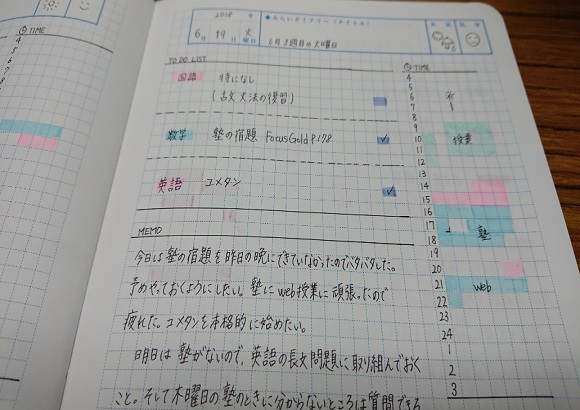 TIME
4
5
6
7
8
2018 年
6月 19日 火曜日
●みらいダイアリー(タイトル)
6月3週目の火曜日
天気 気分
TO DO LIST
国語 特になし
(古文 文法の復習)
数学 塾の宿題 FocusGold P178
英語 コメタン
TIME
4
5
6
7
8
9
10 授業
11
12
13
14
15
16
17 塾
18
19
20
21 web
22
23
24
1
2
3
MEMO
今日は塾の宿題を昨日の晩にできていなかったのでバタバタした。
予めやっておくようにしたい。塾にweb授業に頑張ったので
疲れた。コメタンを本格的に始めたい。
明日は塾がないので、英語の長文問題に取り組んでおく
こと。そして木曜日の塾のときに分からないところは質問できる